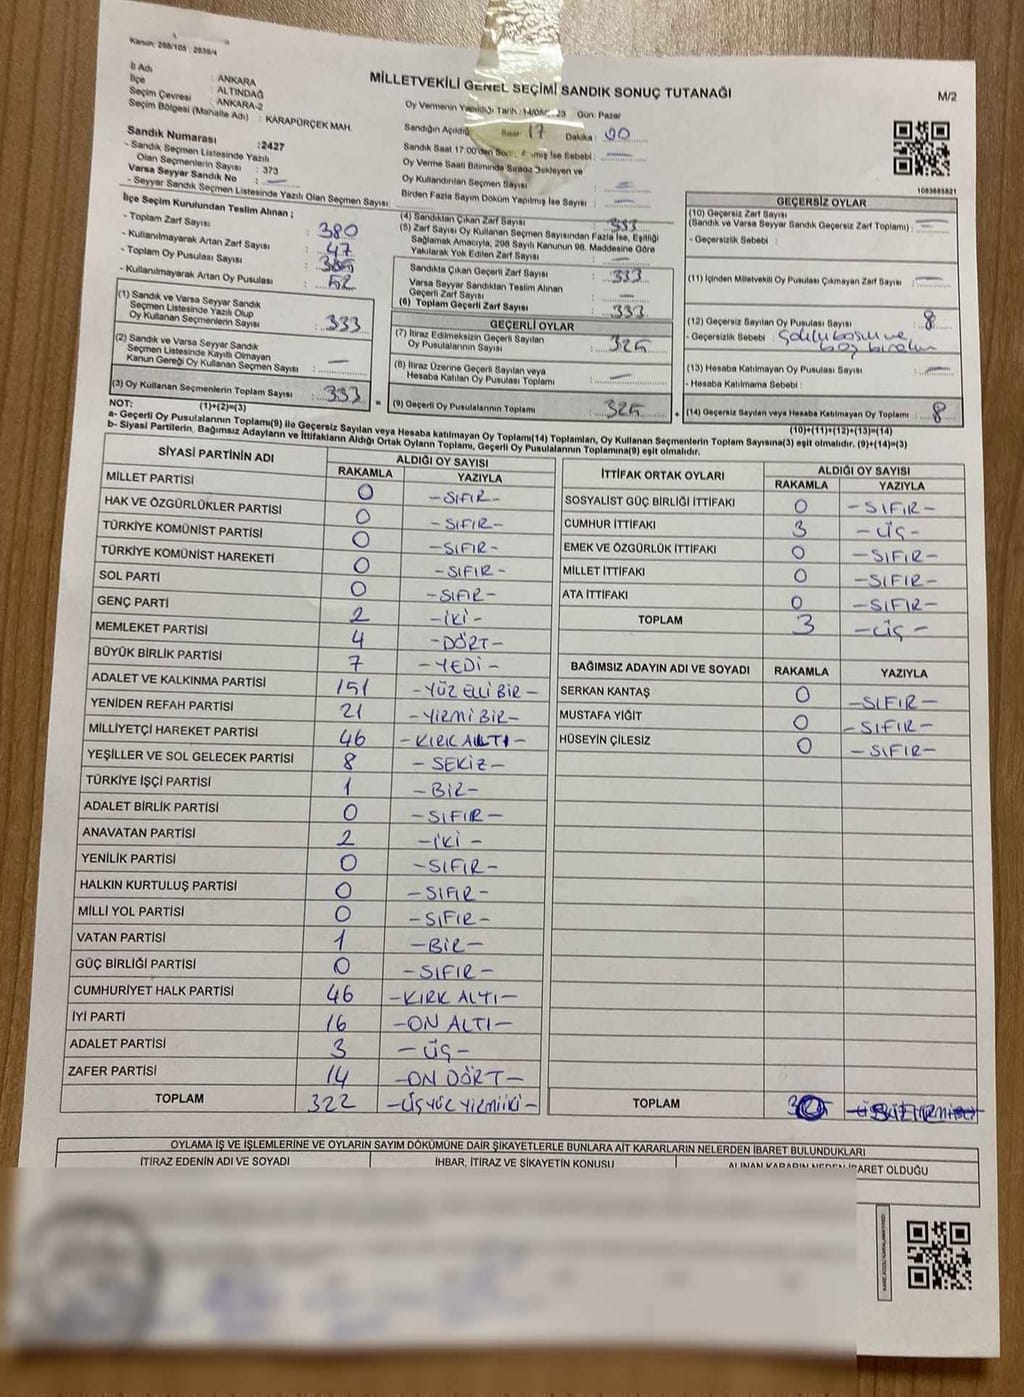 Kanun; 298/105 , 2839/4
MİLLETVEKİLİ GENEL SEÇİMİ SANDIK SONUÇ TUTANAĞI
M/2
İl Adı : ANKARA
İlçe : ALTINDAĞ
Seçim Çevresi : ANKARA-2
Seçim Bölgesi (Mahalle Adı) : KARAPÜRÇEK MAH.
Sandık Numarası :2427
- Sandık Seçmen Listesinde Yazılı
Olan Seçmenlerin Sayısı : 373
Varsa Seyyar Sandık No : —
- Seyyar Sandık Seçmen Listesinde Yazılı Olan Seçmen Sayısı:
Oy Vermenin Yapıldığı Tarih: Gün: Pazar
Sandığın Açıldığı Saat: 17 Dakika: 00
Sandık Saat 17.00'den İse Sebebi : —
Oy Verme Saati Bitiminde Sırada Bekleyen ve
Oy Kullandırılan Seçmen Sayısı : —
Birden Fazla Sayım Döküm Yapılmış İse Sayısı : —
1083685821
İlçe Seçim Kurulundan Teslim Alınan ;
- Toplam Zarf Sayısı : 380
- Kullanılmayarak Artan Zarf Sayısı : 47
- Toplam Oy Pusulası Sayısı : 385
- Kullanılmayarak Artan Oy Pusulası : 52
(1) Sandık ve Varsa Seyyar Sandık
Seçmen Listesinde Yazılı Olup
Oy Kullanan Seçmenlerin Sayısı : 333
(2) Sandık ve Varsa Seyyar Sandık
Seçmen Listesinde Kayıtlı Olmayan
Kanun Gereği Oy Kullanan Seçmen Sayısı : —
(3) Oy Kullanan Seçmenlerin Toplam Sayısı : 333
(1)+(2)=(3)
(4) Sandıktan Çıkan Zarf Sayısı : 333
(5) Zarf Sayısı Oy Kullanan Seçmen Sayısından Fazla İse, Eşitliği
Sağlamak Amacıyla, 298 Sayılı Kanunun 98. Maddesine Göre
Yakılarak Yok Edilen Zarf Sayısı : —
Sandıkta Çıkan Geçerli Zarf Sayısı : 333
Varsa Seyyar Sandıktan Teslim Alınan
Geçerli Zarf Sayısı : —
(6) Toplam Geçerli Zarf Sayısı : 333
GEÇERLİ OYLAR
(7) İtiraz Edilmeksizin Geçerli Sayılan
Oy Pusulalarının Sayısı : 325
(8) İtiraz Üzerine Geçerli Sayılan veya
Hesaba Katılan Oy Pusulası Toplamı : —
= (9) Geçerli Oy Pusulalarının Toplamı : 325
GEÇERSİZ OYLAR
(10) Geçersiz Zarf Sayısı
(Sandık ve Varsa Seyyar Sandık Geçersiz Zarf Toplamı) : —
- Geçersizlik Sebebi :
(11) İçinden Milletvekili Oy Pusulası Çıkmayan Zarf Sayısı : —
(12) Geçersiz Sayılan Oy Pusulası Sayısı : 8
- Geçersizlik Sebebi : ve
boş
(13) Hesaba Katılmayan Oy Pusulası Sayısı : —
- Hesaba Katılmama Sebebi :
+ (14) Geçersiz Sayılan veya Hesaba Katılmayan Oy Toplamı : 8
(10)+(11)+(12)+(13)=(14)
NOT:
a- Geçerli Oy Pusulalarının Toplamı(9) ile Geçersiz Sayılan veya Hesaba katılmayan Oy Toplamı(14) Toplamları, Oy Kullanan Seçmenlerin Toplam Sayısına(3) eşit olmalıdır. (9)+(14)=(3)
b- Siyasi Partilerin, Bağımsız Adayların ve İttifakların Aldığı Ortak Oyların Toplamı, Geçerli Oy Pusulalarının Toplamına(9) eşit olmalıdır.
SİYASİ PARTİNİN ADI ALDIĞI OY SAYISI
RAKAMLA YAZIYLA
MİLLET PARTİSİ 0 -SIFIR-
HAK VE ÖZGÜRLÜKLER PARTİSİ 0 -SIFIR-
TÜRKİYE KOMÜNİST PARTİSİ 0 -SIFIR-
TÜRKİYE KOMÜNİST HAREKETİ 0 -SIFIR-
SOL PARTİ 0 -SIFIR-
GENÇ PARTİ 2 -İKİ-
MEMLEKET PARTİSİ 4 -DÖRT-
BÜYÜK BİRLİK PARTİSİ 7 -YEDİ-
ADALET VE KALKINMA PARTİSİ 151 -YÜZ ELLİ BİR-
YENİDEN REFAH PARTİSİ 21 -YİRMİ BİR-
MİLLİYETÇİ HAREKET PARTİSİ 46 -KIRK ALTI-
YEŞİLLER VE SOL GELECEK PARTİSİ 8 -SEKİZ-
TÜRKİYE İŞÇİ PARTİSİ 1 -BİR-
ADALET BİRLİK PARTİSİ 0 -SIFIR-
ANAVATAN PARTİSİ 2 -İKİ-
YENİLİK PARTİSİ 0 -SIFIR-
HALKIN KURTULUŞ PARTİSİ 0 -SIFIR-
MİLLİ YOL PARTİSİ 0 -SIFIR-
VATAN PARTİSİ 1 -BİR-
GÜÇ BİRLİĞİ PARTİSİ 0 -SIFIR-
CUMHURİYET HALK PARTİSİ 46 -KIRK ALTI-
İYİ PARTİ 16 -ON ALTI-
ADALET PARTİSİ 3 -ÜÇ-
ZAFER PARTİSİ 14 -ON DÖRT-
TOPLAM 322 -ÜÇ YÜZ YİRMİ İKİ-
İTTİFAK ORTAK OYLARI ALDIĞI OY SAYISI
RAKAMLA YAZIYLA
SOSYALİST GÜÇ BİRLİĞİ İTTİFAKI 0 -SIFIR-
CUMHUR İTTİFAKI 3 -ÜÇ-
EMEK VE ÖZGÜRLÜK İTTİFAKI 0 -SIFIR-
MİLLET İTTİFAKI 0 -SIFIR-
ATA İTTİFAKI 0 -SIFIR-
TOPLAM 3 -ÜÇ-
BAĞIMSIZ ADAYIN ADI VE SOYADI RAKAMLA YAZIYLA
SERKAN KANTAŞ 0 -SIFIR-
MUSTAFA YİĞİT 0 -SIFIR-
HÜSEYİN ÇİLESİZ 0 -SIFIR-
TOPLAM
OYLAMA İŞ VE İŞLEMLERİNE VE OYLARIN SAYIM DÖKÜMÜNE DAİR ŞİKAYETLERLE BUNLARA AİT KARARLARIN NELERDEN İBARET BULUNDUKLARI
İTİRAZ EDENİN ADI VE SOYADI İHBAR, İTİRAZ VE ŞİKAYETİN KONUSU ALINAN KARARIN NEDEN İBARET OLDUĞU